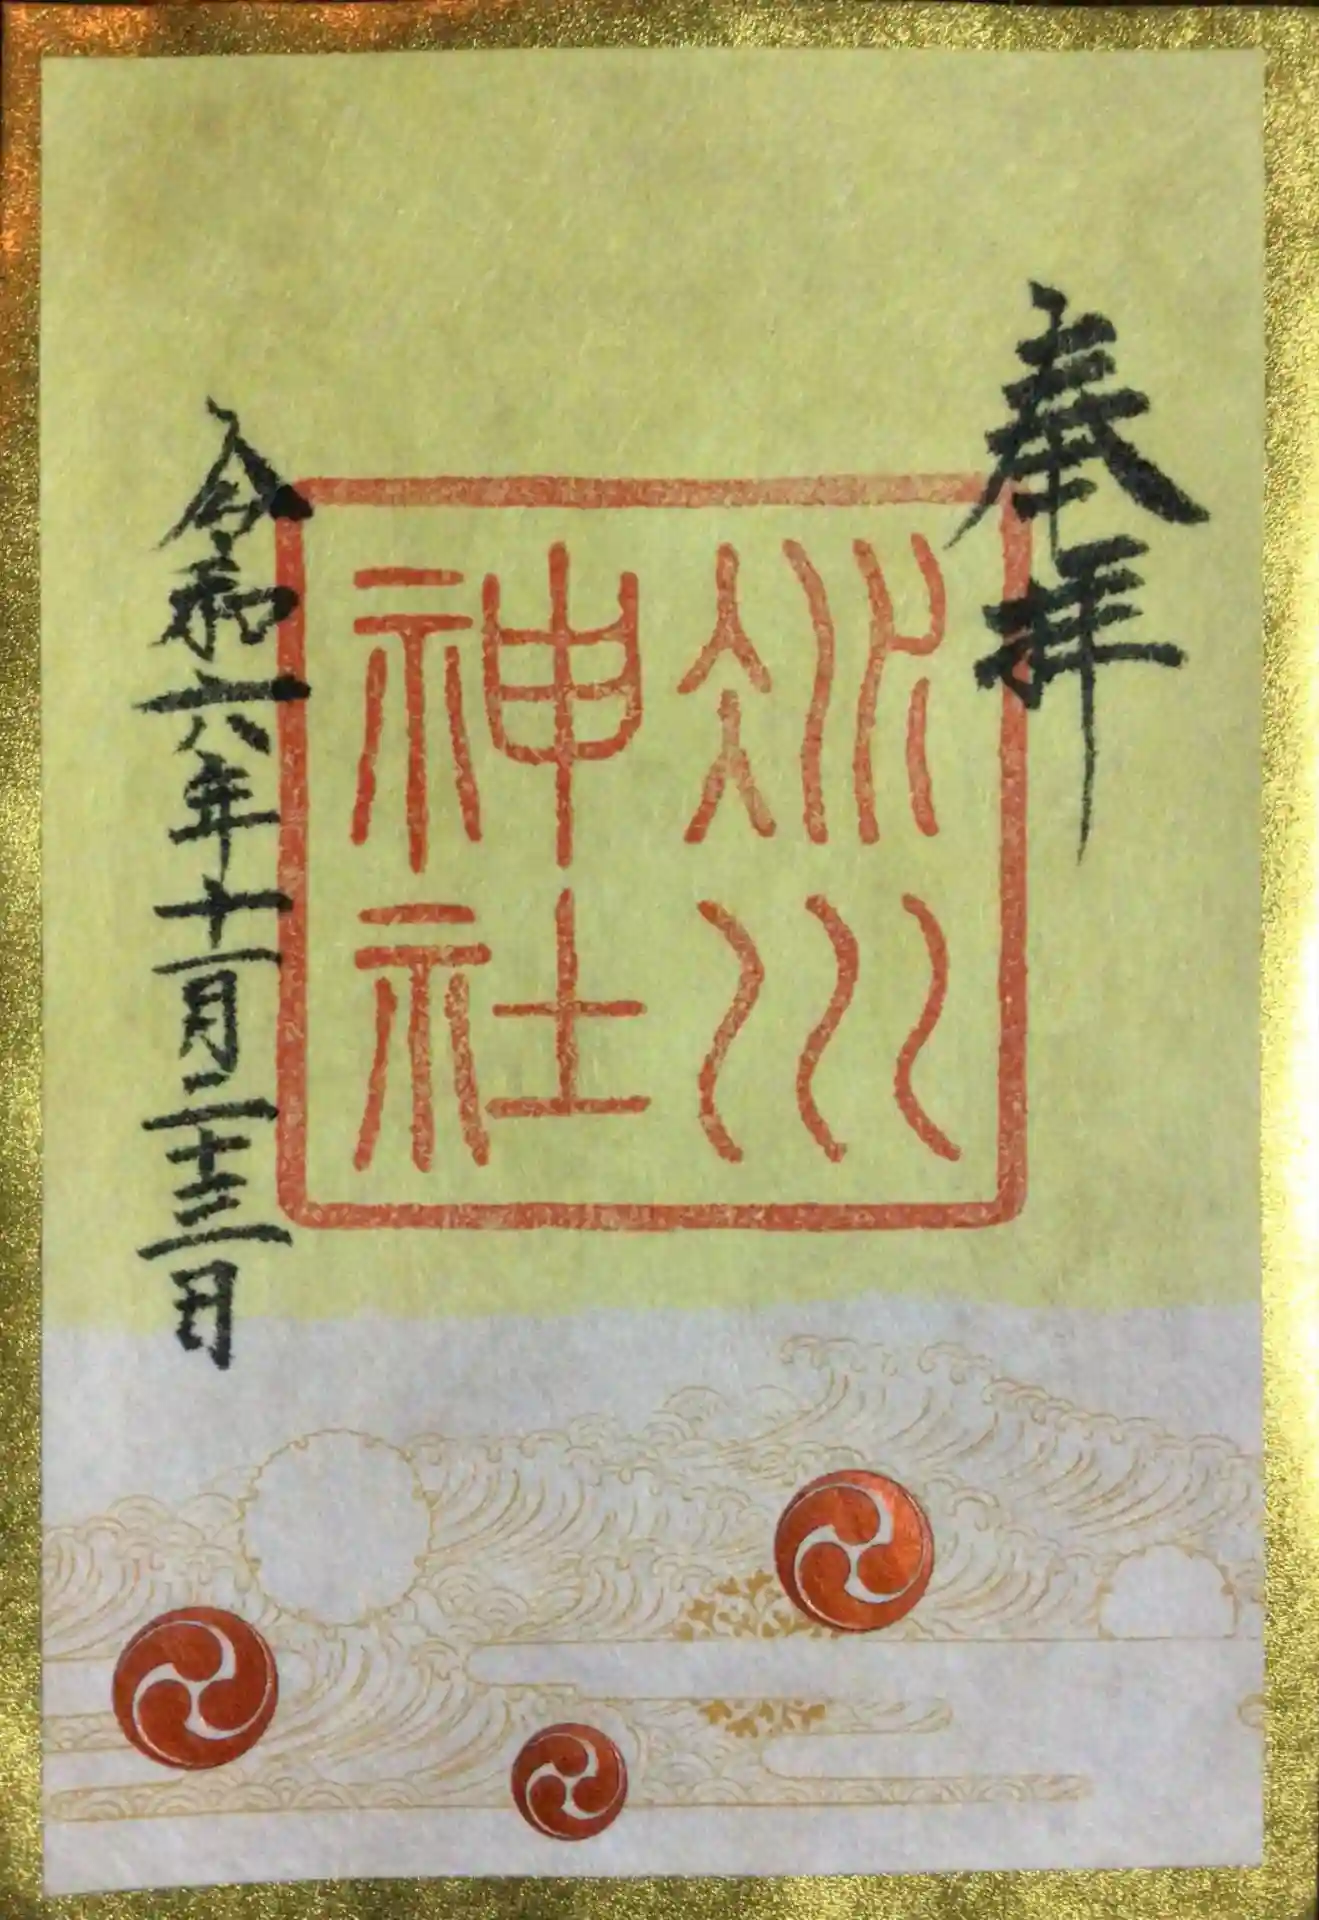 奉拝
冰川
神社
令和六年十一月二十三日